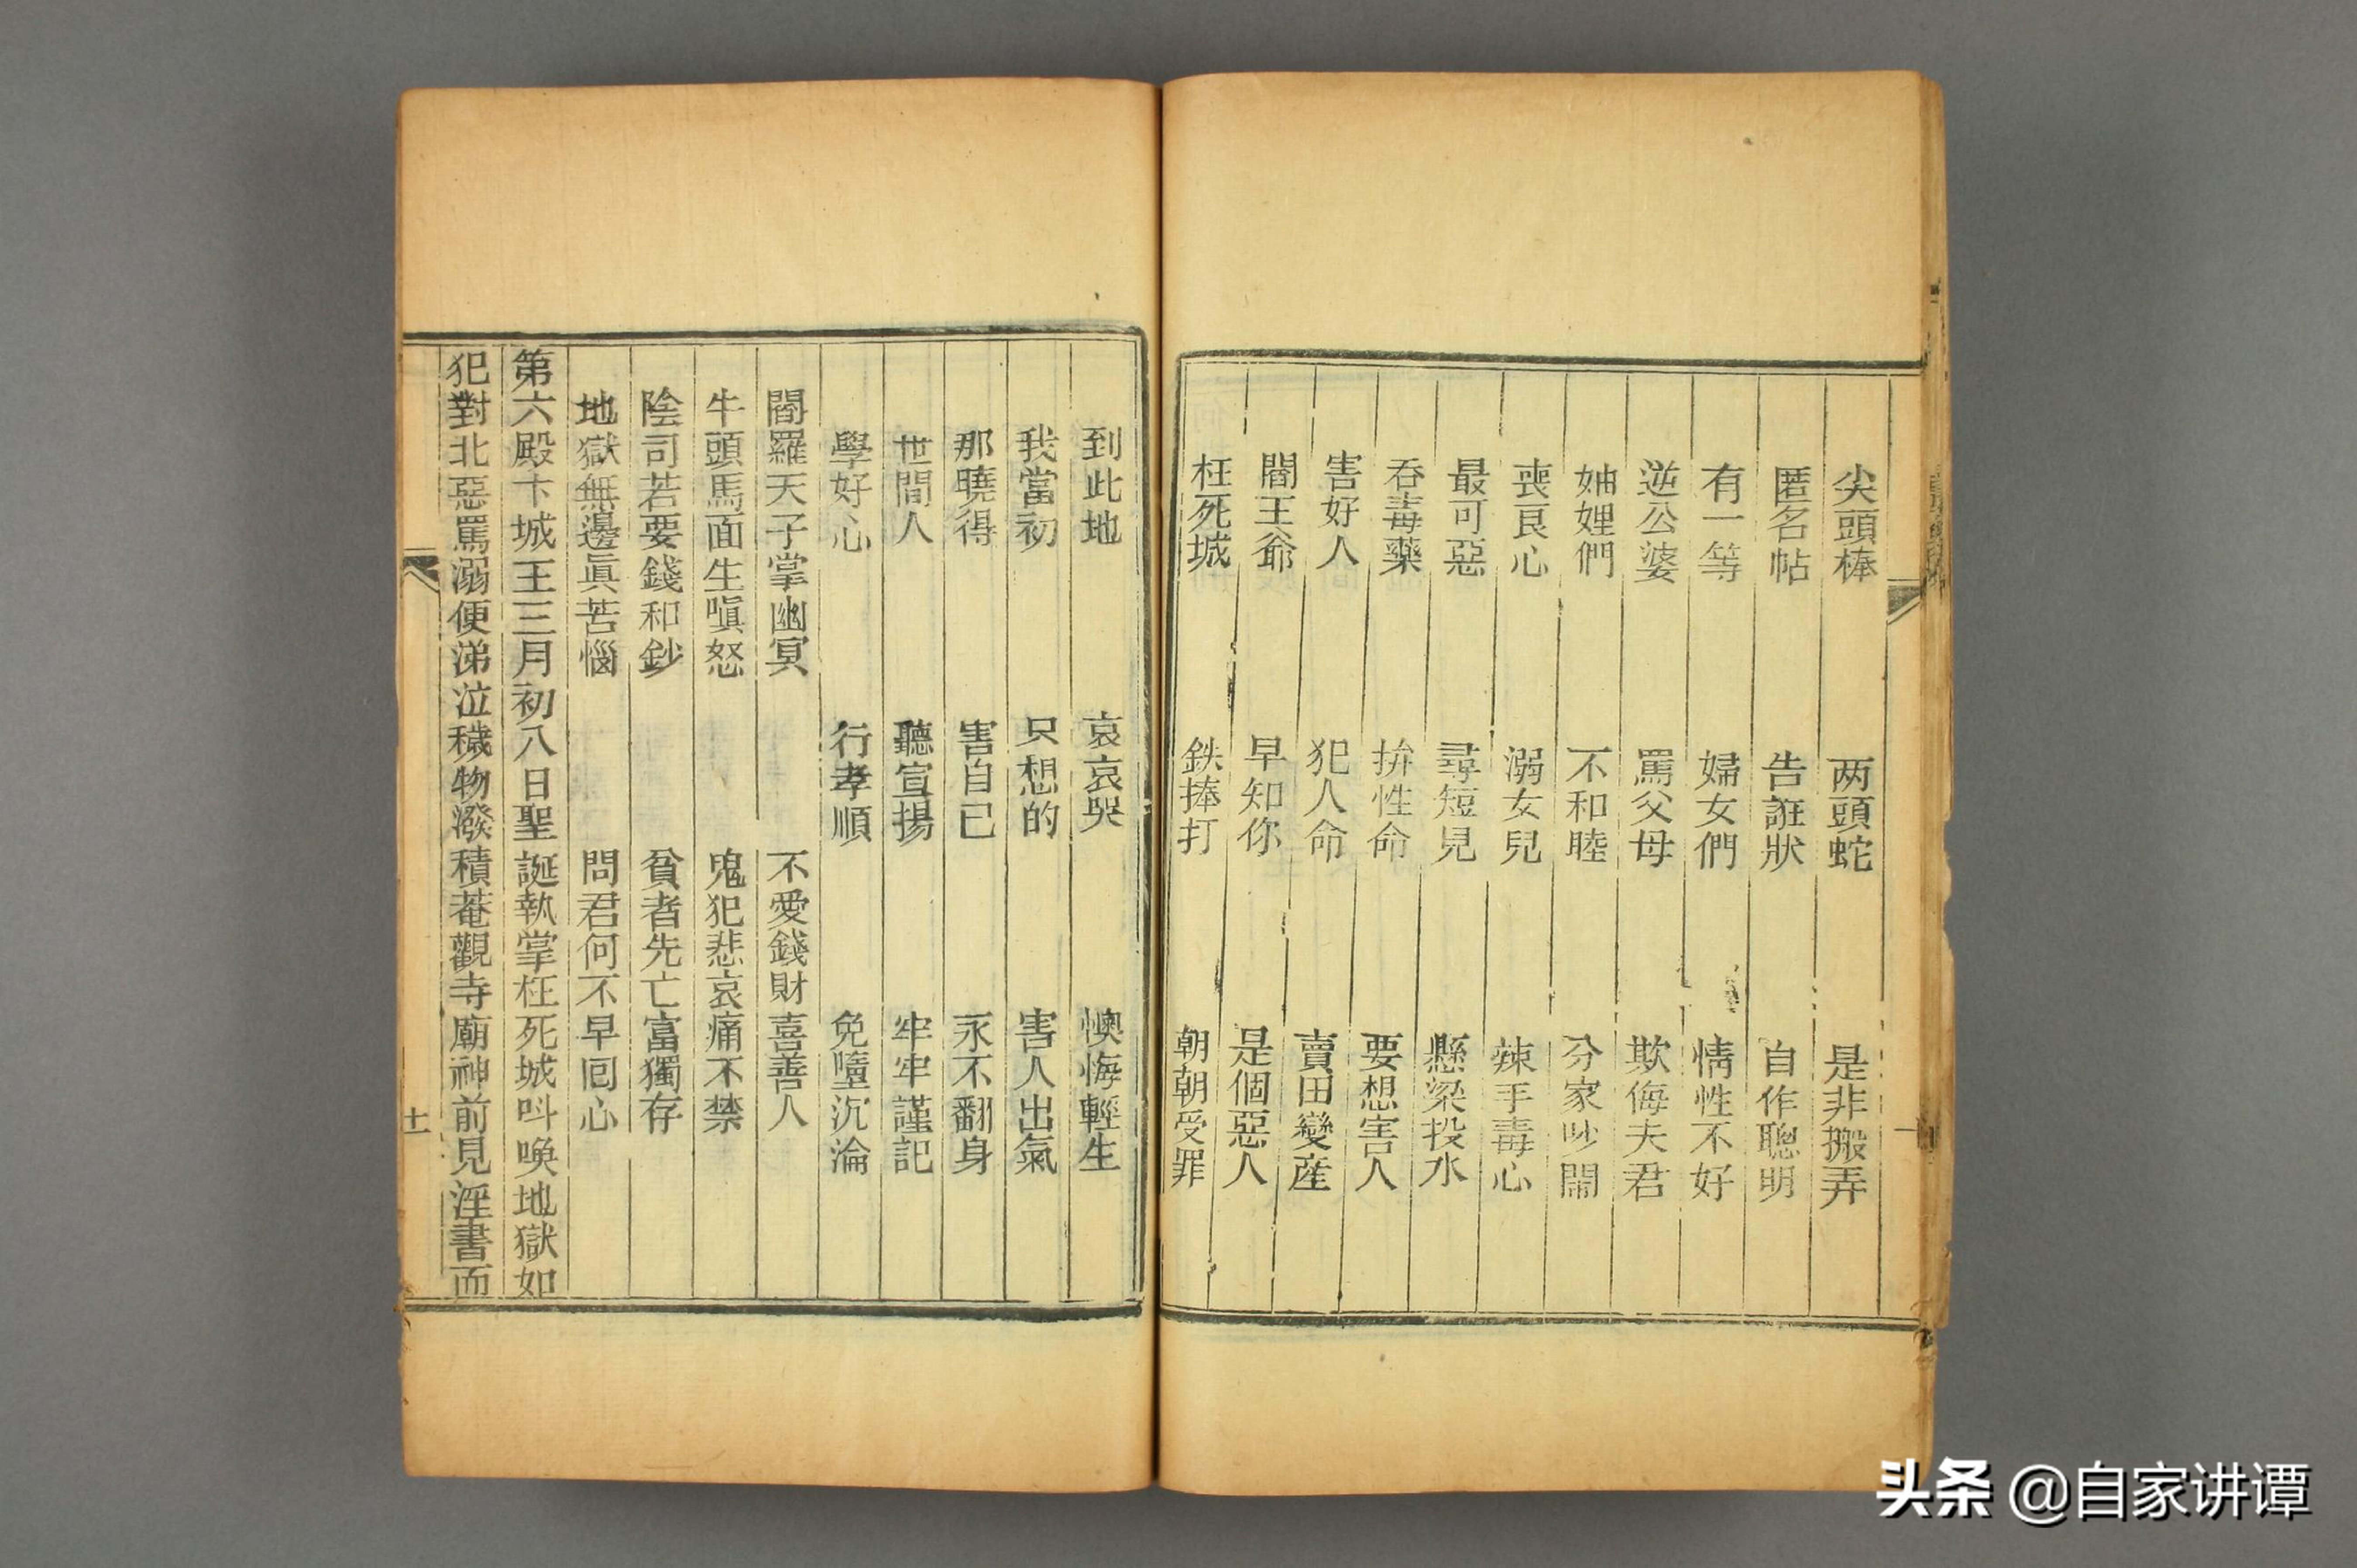 尖頭棒 两頭蛇 是非搬弄
匿名帖 告誑狀 自作聰明
有一等 婦女們 情性不好
逆公婆 罵父母 欺侮夫君
妯娌們 不和睦 分家吵鬧
喪良心 溺女兒 辣手毒心
最可惡 尋短見 懸梁投水
吞毒藥 拚性命 要想害人
害好人 犯人命 賣田變産
閻王爺 早知你 是個惡人
枉死城 鉄捧打 朝朝受罪
到此地 哀哀哭 懊悔輕生
我當初 只想的 害人出氣
那曉得 害自己 永不翻身
世間人 聽宣揚 牢牢謹記
學好心 行孝順 免墮沉淪
閻羅天子掌幽冥 不愛錢財喜善人
牛頭馬面生嗔怒 鬼犯悲哀痛不禁
陰司若要錢和鈔 貧者先亡富獨存
地獄無邊眞苦惱 問君何不早囘心
第六殿卞城王三月初八日聖誕執掌枉死城呌喚地獄如
犯對北惡罵溺便涕泣穢物潑積菴觀寺廟神前見淫書而
十一
头条 @自家讲谭